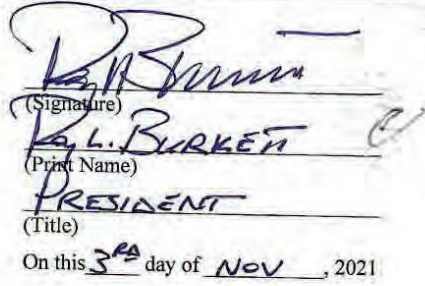 (Signature)
Roy L. BURKETT
(Print Name)
PRESIDENT
(Title)
On this 3RD day of NOV, 2021